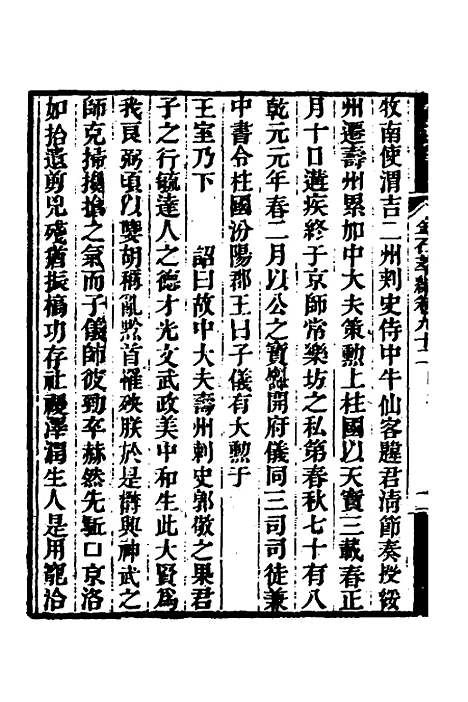 金石萃編卷九十二
牧南使渭吉二州刺史侍中牛仙客韙君淸節奏授綏
州遷壽州累加中大夫策勳上柱國以天寶三載春正
月十日遘疾終于京師常樂坊之私第春秋七十有八
乾元元年春二月以公之寶胤開府儀同三司司徒兼
中書令上柱國汾陽郡王曰子儀有大勲于
王室乃下　詔曰故中大夫壽州刺史郭敬之果君
子之行毓達人之德才光文武政美中和生此大賢爲
我良弼頃以孽胡稱亂黔首罹殃朕於是欝興神武之
師克掃攙搶之氣而子儀師彼勁卒赫然先驅口京洛
如拾遺剪兇殘猶振槁功存社稷澤潤生人是用寵洽